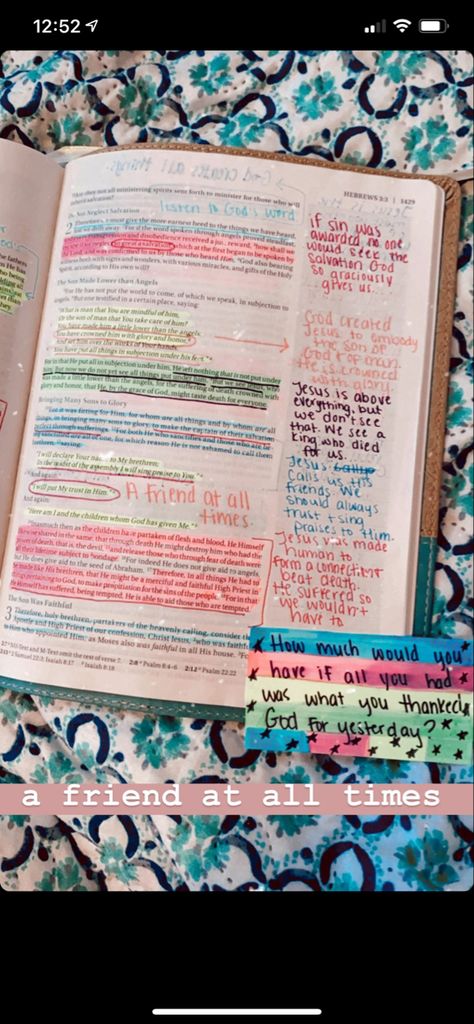 12:52
God created all things
HEBREWS 3:2 | 1429
listen to God's word
Do Not Neglect Salvation
2 Therefore, we must give the more earnest heed to the things we have heard,
so great a salvation
The Son Made Lower than Angels
For He has not put the world to come, of which we speak, in subjection to
angels. But one testified in a certain place, saying:
"What is man that You are mindful of him,
Or the son of man that You take care of him?
You have made him a little lower than the angels;
You have crowned him with glory and honor,
And set him over the works of Your hands.
You have put all things in subjection under his feet."
For in that He put all in subjection under him, He left nothing that is not put under
him. But now we do not yet see all things put under him. But we see Jesus, who
was made a little lower than the angels, for the suffering of death crowned with
glory and honor, that He, by the grace of God, might taste death for everyone.
Bringing Many Sons to Glory
For it was fitting for Him, for whom are all things and by whom are all
things, in bringing many sons to glory, to make the captain of their salvation
perfect through sufferings. For both He who sanctifies and those who are be-
ing sanctified are all of one, for which reason He is not ashamed to call them
brethren, saying:
"I will declare Your name to My brethren;
In the midst of the assembly I will sing praise to You."
And again:
"I will put My trust in Him."
And again:
"Here am I and the children whom God has given Me."
A friend at all
times.
Inasmuch then as the children have partaken of flesh and blood, He Himself
likewise shared in the same, that through death He might destroy him who had the
power of death, that is, the devil, and release those who through fear of death were
all their lifetime subject to bondage. For indeed He does not give aid to angels,
but He does give aid to the seed of Abraham. Therefore, in all things He had to
be made like His brethren, that He might be a merciful and faithful High Priest in
things pertaining to God, to make propitiation for the sins of the people. For in that
He Himself has suffered, being tempted, He is able to aid those who are tempted.
The Son Was Faithful
3 Therefore, holy brethren, partakers of the heavenly calling, consider the
Apostle and High Priest of our confession, Christ Jesus, who was faithful
to Him who appointed Him, as Moses also was faithful in all His house. For
if sin was
awarded no one
would seek the
salvation God
so graciously
gives us...
God created
Jesus to embody
the son of
God & of man.
He is crowned
with glory.
Jesus is above
everything, but
we don't see
that. We see a
king who died
for us.
Jesus
calls us his
friends. We
should always
trust & sing
praises to Him.
Jesus was made
human to
form a connection &
beat death.
He suffered so
we wouldn't
have to
How much would you
have if all you had
was what you thanked
God for yesterday?
a friend at all times